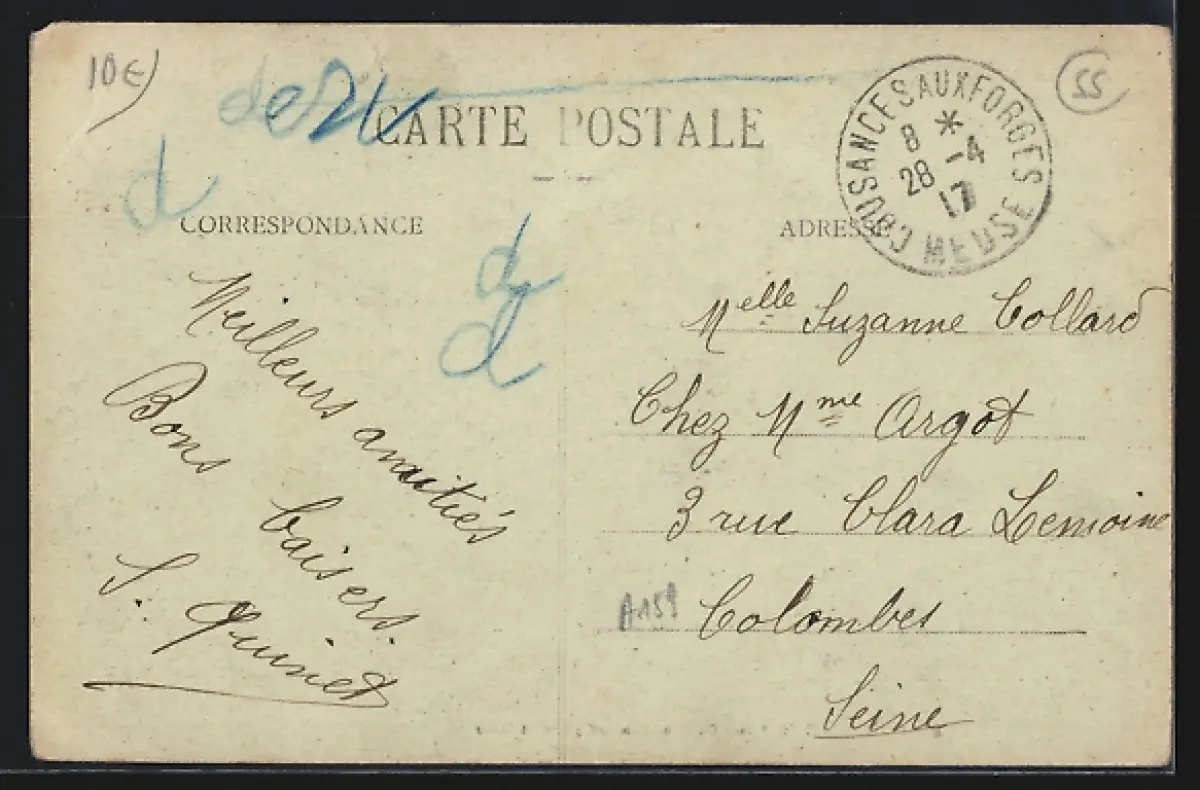 10€
55
CARTE POSTALE
COUSANCES AUX FORGES
8 *
28 -4
17
MEUSE
CORRESPONDANCE
ADRESSE
Meilleurs amitiés
Bons baisers.
S. Quinet
Melle Suzanne Collard
Chez Mme Argot
3 rue Clara Lemoine
A159
Colombes
Seine